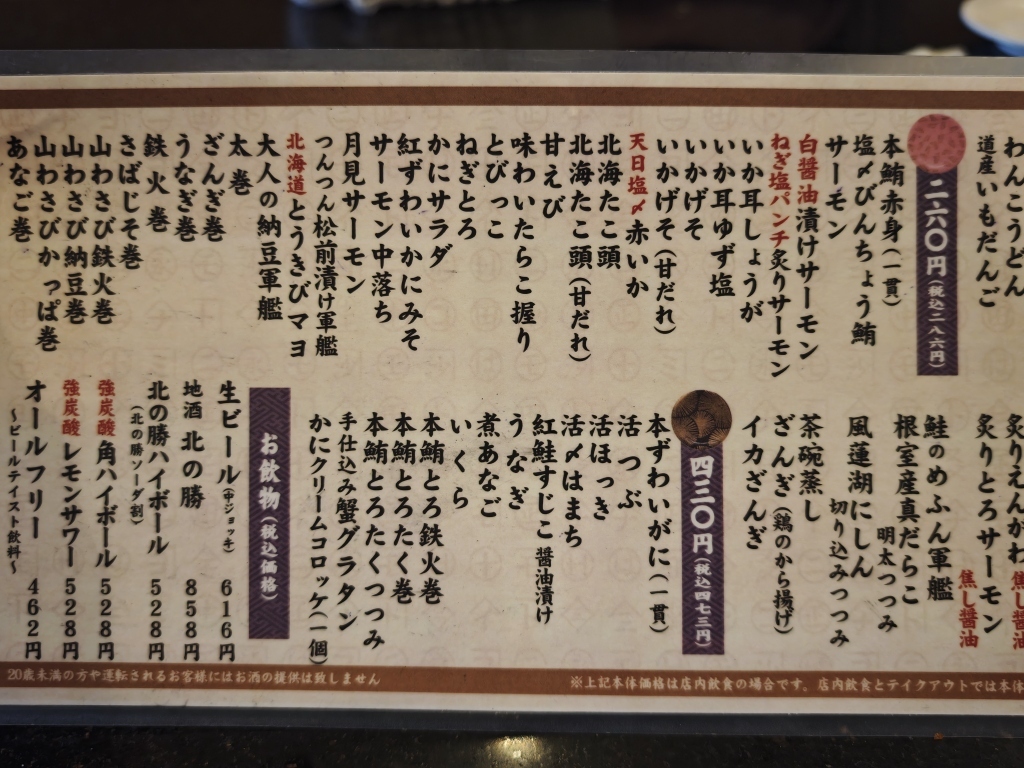 わんこうどん
道産いもだんご
二六〇円(税込二八六円)
本鮪赤身(一貫)
塩〆びんちょう鮪
サーモン
白醤油漬けサーモン
ねぎ塩パンチ炙りサーモン
いか耳しょうが
いか耳ゆず塩
いかげそ
いかげそ(甘だれ)
天日塩〆赤いか
北海たこ頭
北海たこ頭(甘だれ)
甘えび
味わいたらこ握り
とびっこ
ねぎとろ
かにサラダ
紅ずわいかにみそ
サーモン中落ち
月見サーモン
つんつん松前漬け軍艦
北海道とうきびマヨ
大人の納豆軍艦
太巻
ざんぎ巻
うなぎ巻
鉄火巻
さばじそ巻
山わさび鉄火巻
山わさび納豆巻
山わさびかっぱ巻
あなご巻
炙りえんがわ 焦し醤油
炙りとろサーモン 焦し醤油
鮭のめふん軍艦
根室産真だらこ
明太つつみ
風蓮湖にしん
切り込みつつみ
茶碗蒸し
ざんぎ(鶏のから揚げ)
イカざんぎ
四三〇円(税込四七三円)
本ずわいがに(一貫)
活つぶ
活ほっき
活〆はまち
紅鮭すじこ醤油漬け
うなぎ
煮あなご
いくら
本鮪とろ鉄火巻
本鮪とろたく巻
本鮪とろたくつつみ
手仕込み蟹グラタン
かにクリームコロッケ(一個)
お飲物(税込価格)
生ビール(中ジョッキ) 616円
地酒 北の勝 858円
北の勝ハイボール 528円
(北の勝ソーダ割)
強炭酸 角ハイボール 528円
強炭酸 レモンサワー 528円
オールフリー 462円
〜ビールテイスト飲料〜
20歳未満の方や運転されるお客様にはお酒の提供は致しません
※上記本体価格は店内飲食の場合です。店内飲食とテイクアウトでは本体